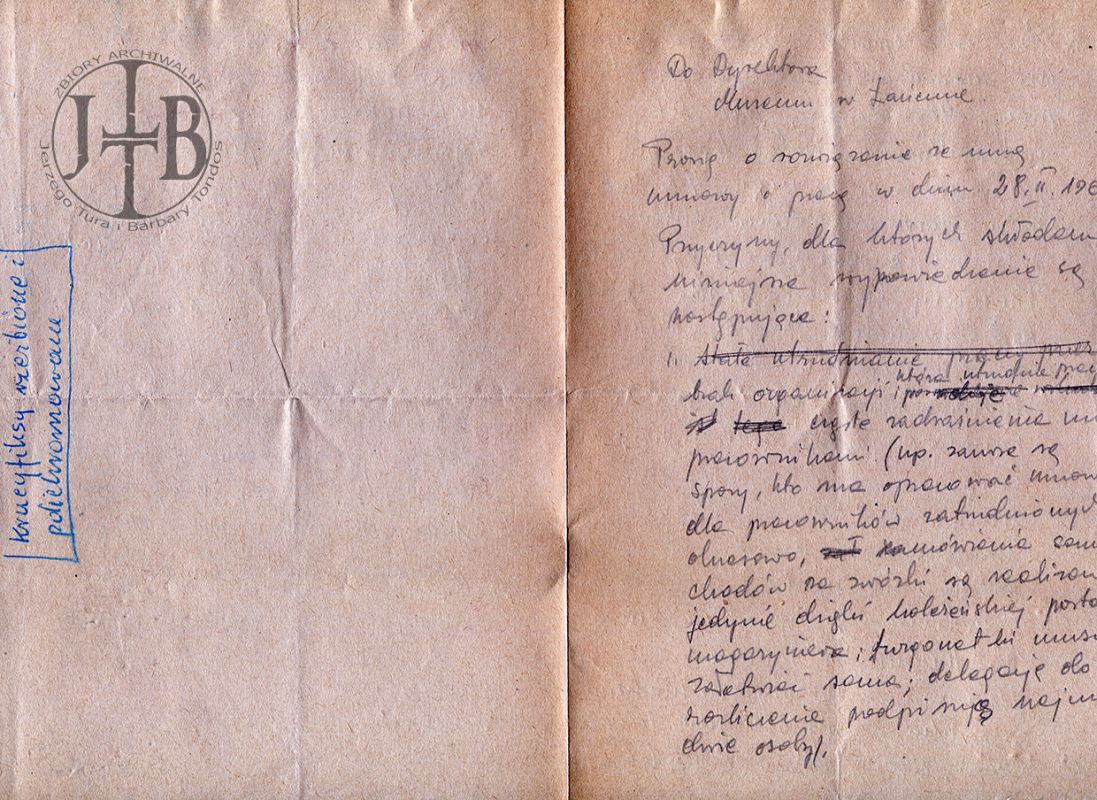 ZBIORY ARCHIWALNE
JTB
Jerzego Tura i Barbary Tondos
Krucyfiksy rzeźbione i
polichromowane
Do Dyrektora
Muzeum w Łańcucie
Proszę o rozwiązanie ze mną
umowy o pracę w dniu 28.II.196
Przyczyny, dla których składam
niniejsze wypowiedzenie są
następujące:
1. Stałe utrudnianie pracy przez
brak organizacji, która utrudnia pracę
i częste zadrażnienia
pracownikami (np. zawsze są
spory, kto ma opracować umow
dla pracowników zatrudnionych
okresowo, zamówienia samo
chodów na zwózki są realizow
jedynie dzięki koleżeńskiej posta
magazyniera; furgonetki musz
załatwiać sama; delegację do
rozliczenia podpisują najmn
dwie osoby).